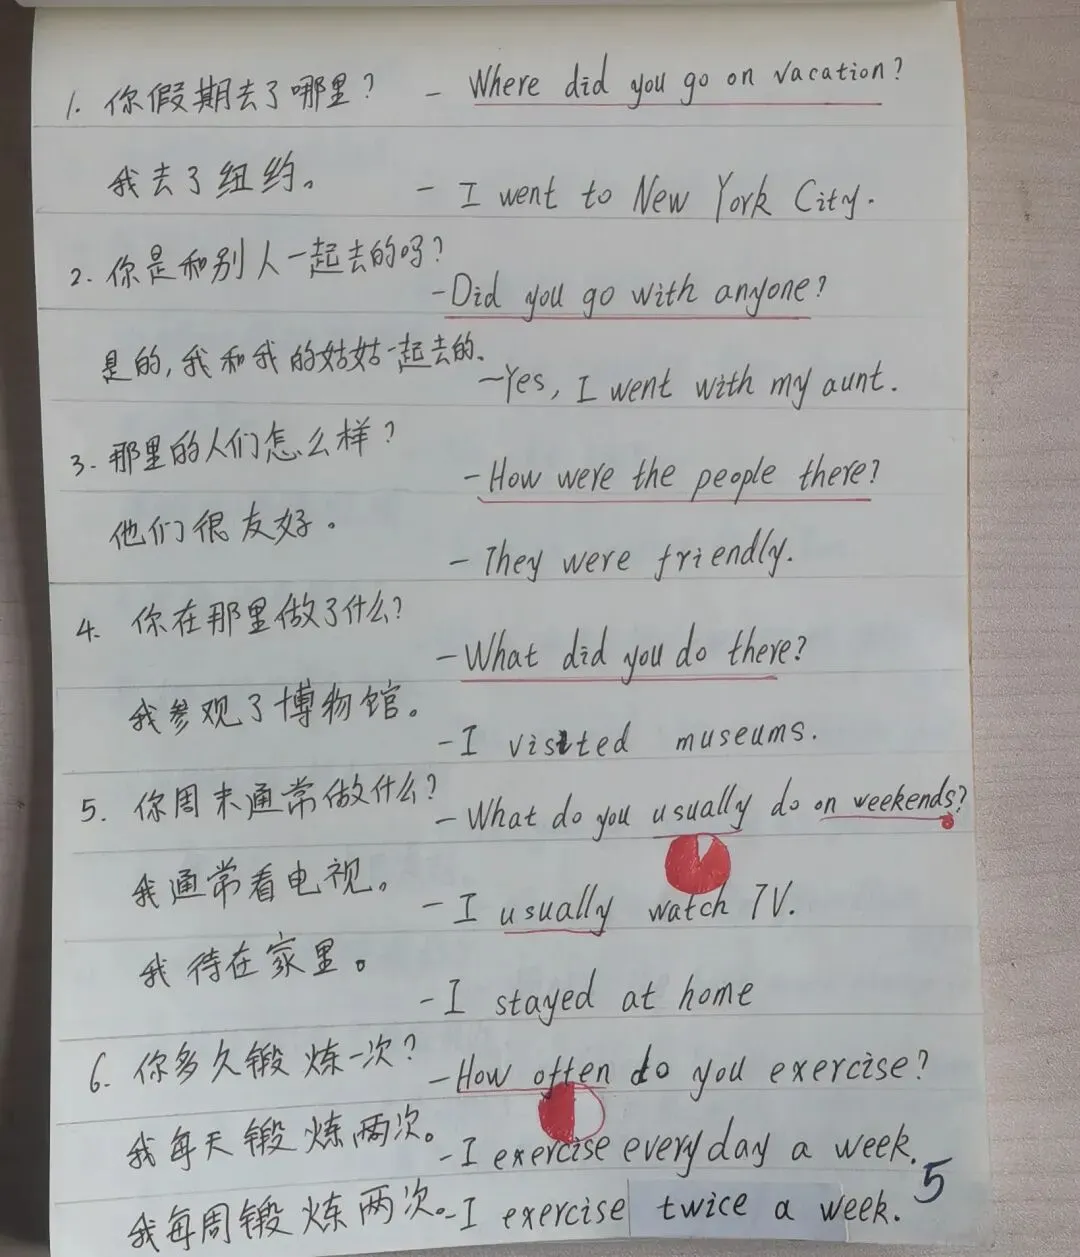 1. 你假期去了哪里? - Where did you go on vacation?
我去了纽约。 - I went to New York City.
2. 你是和别人一起去的吗? - Did you go with anyone?
是的,我和我的姑姑一起去的、 - Yes, I went with my aunt.
3. 那里的人们怎么样? - How were the people there?
他们很友好。 - They were friendly.
4. 你在那里做了什么? - What did you do there?
我参观了博物馆。 - I visited museums.
5. 你周末通常做什么? - What do you usually do on weekends?
我通常看电视。 - I usually watch TV.
我待在家里。 - I stayed at home
6. 你多久锻炼一次? - How often do you exercise?
我每天锻炼两次。 - I exercise every day a week.
我每周锻炼两次。 - I exercise twice a week.
5